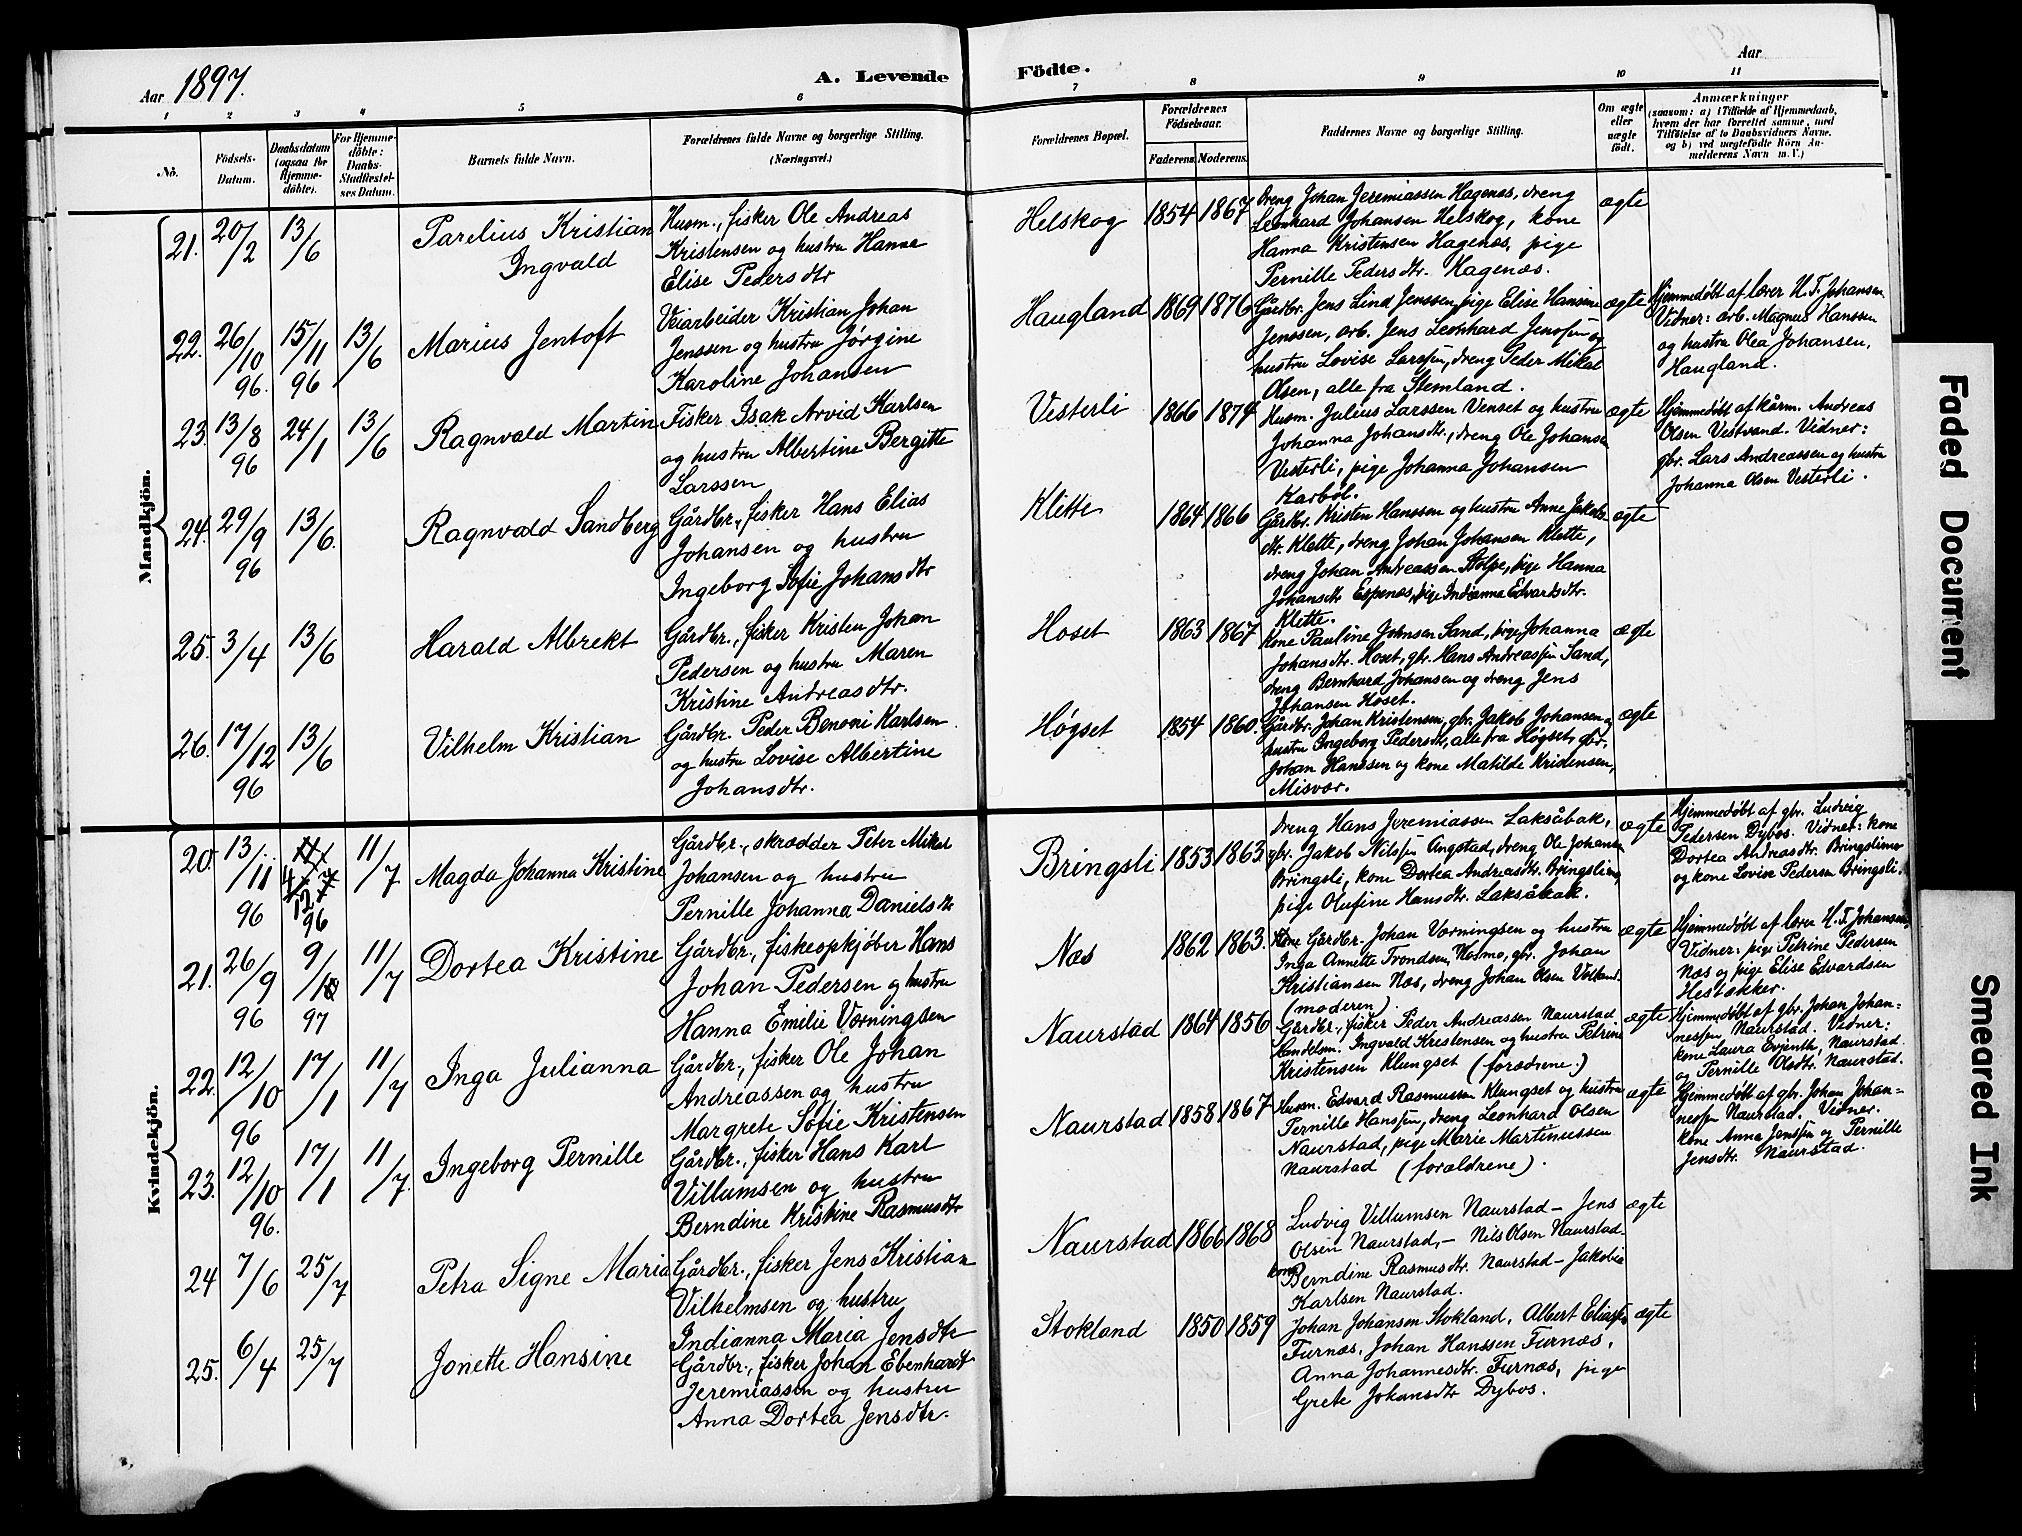 Aar 1897.
A. Levende Födte.
Aar
1 2 3 4 5 6 7 8 9 10 11
No.
Födsels-
Datum.
Daabsdatum
(ogsaa for
Hjemme-
döbte).
For Hjemme-
döbte:
Daabs-
Stadfæstel-
ses Datum.
Barnets fulde Navn.
Forældrenes fulde Navne og borgerlige Stilling.
(Næringsvei.)
Forældrenes Bopæl.
Forældrenes
Födselsaar.
Faderens. Moderens.
Faddernes Navne og borgerlige Stilling.
Om ægte
eller
uægte
födt.
Anmærkninger
(saasom: a) i Tilfælde af Hjemmedaab,
hvem der har forrettet samme, med
Tilföielse af to Daabsvidners Navne,
og b) ved uægtefödte Börn An-
melderens Navn m. V.)
Mandkjön.
21. 20/2 13/6
Parelius Kristian
Ingvald
Husm., fisker Ole Andreas
Kristensen og hustru Hanna
Elise Pedersdtr
Helskog 1854 1867
dreng Johan Jeremiassen Hagenæs, dreng
Leonhard Johansen Helskog, kone
Hanna Kristensen Hagenæs, pige
Pernille Pedersdtr. Hagenæs.
ægte
22. 26/10 96. 15/11 96 13/6
Marius Jentoft
Veiarbeider Kristian Johan
Jenssen og hustru Jørgine
Karoline Johansen
Haugland 1869 1876
Gårdbr. Jens Lind Jenssen, pige Elise Hansine
Jenssen, arb. Jens Leonhard Jenssen og
hustru Lovise Larssen, dreng Peder Mikal
Olsen, alle fra Stemland.
ægte
Hjemmedøbt af lærer H. T. Johansen
Vidner: arb. Magnus Hanssen
og hustru Olea Johansen,
Haugland.
23. 13/8 96 24/1 13/6
Ragnvald Martin
Fisker Isak Arvid Karlsen
og hustru Albertine Bergitte
Larssen
Vesterli 1866 1874
Husm. Julius Larssen Venset og hustru
Johanna Johansdtr., dreng Ole Johansen
Vesterli, pige Johanna Johansen
Karbøl.
ægte
Hjemmedøbt af kårm. Andreas
Olsen Vestvand. Vidner:
gbr. Lars Andreassen og hustru
Johanna Olsen Vesterli.
24. 29/9 96 13/6.
Ragnvald Sandberg
Gårdbr., fisker Hans Elias
Johansen og hustru
Ingeborg Sofie Johansdtr
Klette 1864 1866
Gårdbr. Kristen Hanssen og hustru Anne Jakobs
dtr. Klette, dreng Johan Johansen Klette,
dreng Johan Andreassen Stolpe, pige Hanna
Johansdtr Espenæs, pige Indianna Edvardsdtr.
Klette.
ægte
25. 3/4 13/6
Harald Albrekt
Gårdbr., fisker Kristen Johan
Pedersen og hustru Maren
Kristine Andreasdtr.
Hoset 1863 1867
Kone Pauline Johnsen Sand, pige Johanna
Johansdtr. Hoset, gbr. Hans Andreassen Sand,
dreng Bernhard Johansen og dreng Jens
Johansen Hoset.
ægte
26. 17/12 96 13/6
Vilhelm Kristian
Gårdbr. Peder Benoni Karlsen
og hustru Lovise Albertine
Johansdtr.
Høgset 1854 1860.
Gårdbr. Johan Kristensen, gbr. Jakob Johansen og
hustru Ingeborg Pedersdtr, alle fra Høgset, gbr.
Johan Hanssen og kone Matilde Kristensen,
Misvær.
ægte
Kvindekjön.
20. 13/11 96 12 96 11/7
Magda Johanna Kristine
Gårdbr., skrædder Peter Mikal
Johansen og hustru
Pernille Johanna Danielsdtr
Bringsli 1853 1863
dreng Hans Jeremiassen Laksåbak,
gbr. Jakob Nilssen Angstad, dreng Ole Johansen
Bringsli, kone Dortea Andreasdtr. Bringslimo,
pige Olufine Hansdtr. Laksåbak.
ægte
Hjemmedøbt af gbr. Ludvig
Pedersen Dybos. Vidner: kone
Dortea Andreasdtr. Bringslimo
og kone Lovise Pedersen Bringsli.
21. 26/9 96 9/10 97 11/7
Dortea Kristine
Gårdbr., fiskeopkjøber Hans
Johan Pedersen og hustru
Hanna Emilie Værningsen
Næs 1862 1863.
Gårdbr. Johan Værningsen og hustru
Inga Annette Trondsen, Mosmo, gbr. Johan
Kristiansen Næs, dreng Johan Olsen
(moderen).
ægte
Hjemmedøbt af lærer H. T. Johansen,
Vidner: pige Petrine Pedersen
Næs og pige Elise Edvardsen
Hestækker.
22. 12/10 96 17/1 11/7
Inga Julianna
Gårdbr., fisker Ole Johan
Andreassen og hustru
Margrete Sofie Kristensen
Naurstad 1864 1856
Gårdbr., fisker Peder Andreassen Naurstad
Handelsm. Ingvald Kristensen og hustru Petrine
Kristensen Klungset (forældrene.)
ægte
Hjemmedøbt af gbr. Johan Johan=
nessen Naurstad. Vidner:
kone Laura Evjenth, Naurstad
og Pernille Olsdtr. Naurstad.
23. 12/10 96. 17/1 11/7.
Ingeborg Pernille
Gårdbr., fisker Hans Karl
Villumsen og hustru
Berndine Kristine Rasmusdtr
Naurstad 1858 1867
Husm. Edvard Rasmussen Klungset og hustru
Pernille Hanssen, dreng Leonhard Olsen
Naurstad, pige Marie Martinussen
Naurstad (forældrene).
ægte
Hjemmedøbt af gbr. Johan Johan=
nessen Naurstad. Vidner.
kone Anna Jenssen og Pernille
Jensdtr. Naurstad.
24 7/6 25/7
Petra Signe Maria
Gårdbr., fisker Jens Kristian
Vilhelmsen og hustru
Indianna Maria Jensdtr
Naurstad 1866 1868
Ludvig Villumsen Naurstad – Jens
Olsen Naurstad, – Nils Olsen Naurstad.
kone Berndine Rasmusdtr. Naurstad – Jakobia
Karlsen Naurstad.
ægte
25. 6/4 25/7
Jonette Hansine
Gårdbr., fisker Johan Ebenhardt
Jeremiassen og hustru
Anna Dortea Jensdtr.
Stokland 1850 1859
Johan Johansen Stokland, Albert Eliassen
Furnæs, Johan Hanssen Furnæs,
Anna Johannesdtr. Furnæs, pige
Grete Johansdtr Dybos.
ægte
Faded Document
Smeared Ink